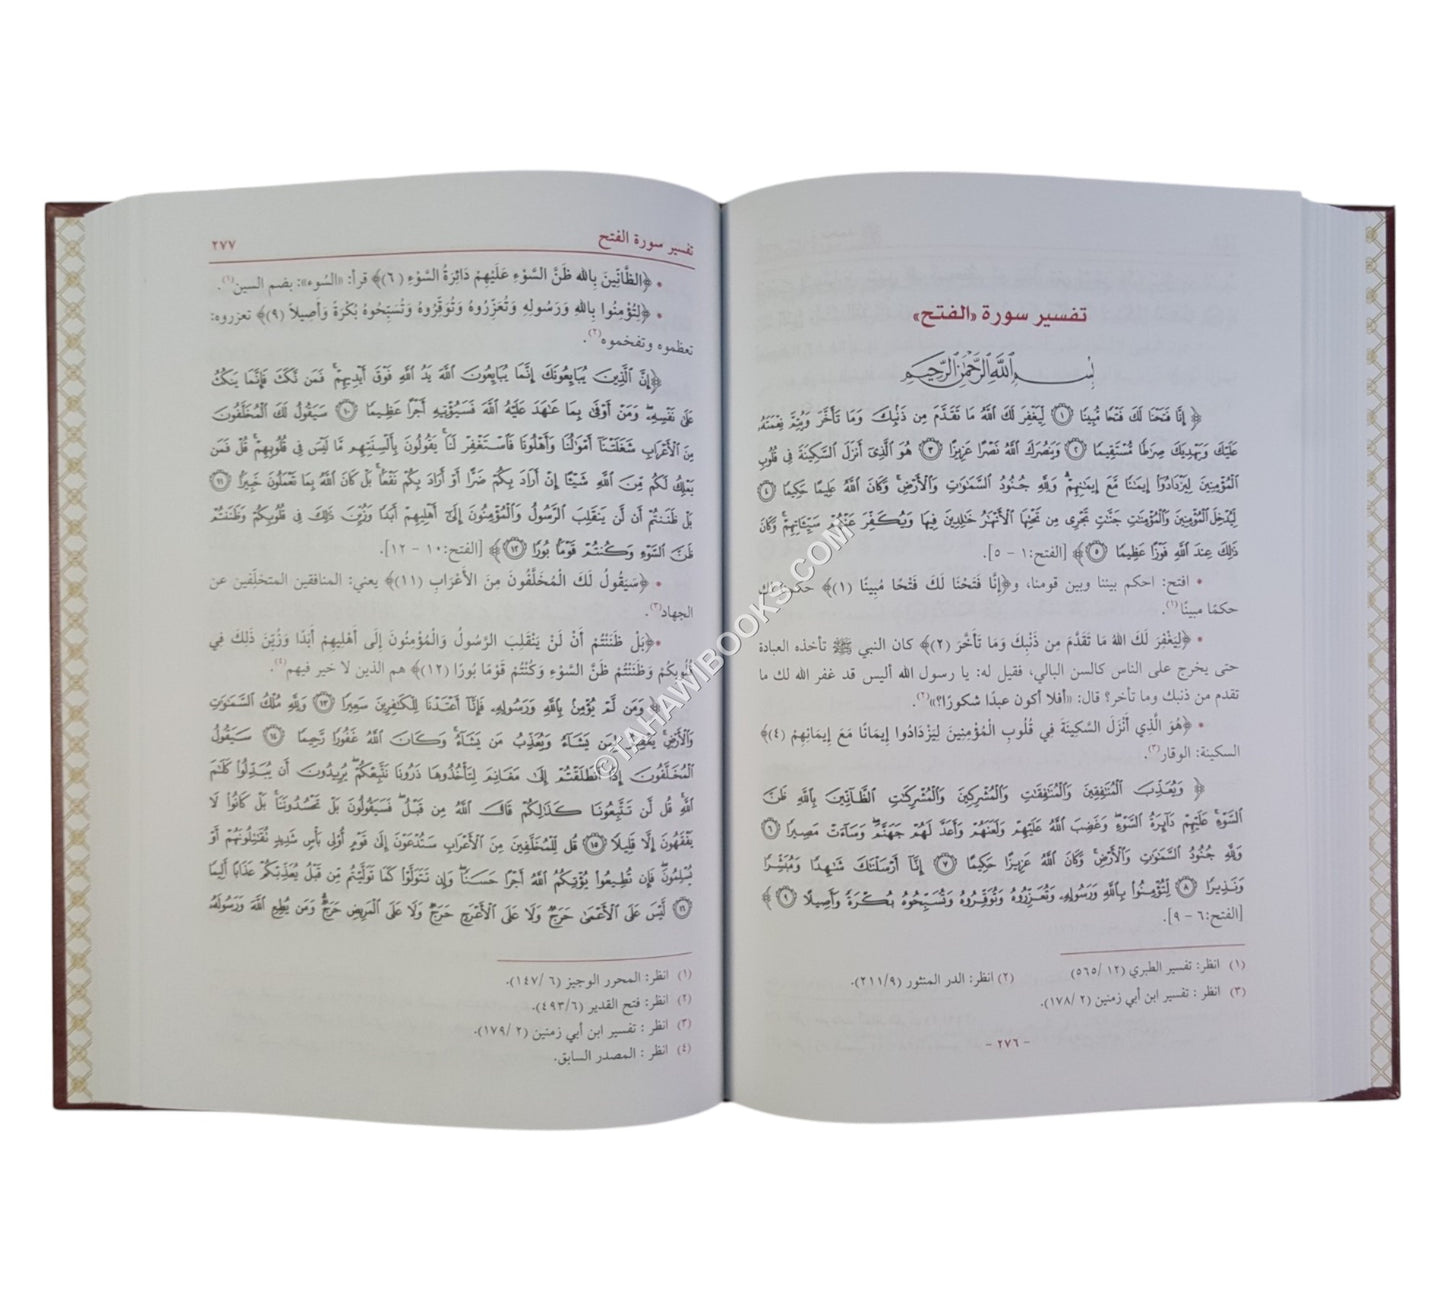 تفسير سورة «الفتح»
بِسْمِ اللَّهِ الرَّحْمَٰنِ الرَّحِيمِ
﴿إِنَّا فَتَحْنَا لَكَ فَتْحًا مُّبِينًا ١ لِّيَغْفِرَ لَكَ اللَّهُ مَا تَقَدَّمَ مِن ذَنۢبِكَ وَمَا تَأَخَّرَ وَيُتِمَّ نِعْمَتَهُۥ
عَلَيْكَ وَيَهْدِيَكَ صِرَٰطًا مُّسْتَقِيمًا ٢ وَيَنصُرَكَ اللَّهُ نَصْرًا عَزِيزًا ٣ هُوَ الَّذِىٓ أَنزَلَ السَّكِينَةَ فِى قُلُوبِ
الْمُؤْمِنِينَ لِيَزْدَادُوٓا۟ إِيمَٰنًا مَّعَ إِيمَٰنِهِمْ ۗ وَلِلَّهِ جُنُودُ السَّمَٰوَٰتِ وَالْأَرْضِ ۚ وَكَانَ اللَّهُ عَلِيمًا حَكِيمًا ٤
لِّيُدْخِلَ الْمُؤْمِنِينَ وَالْمُؤْمِنَٰتِ جَنَّٰتٍ تَجْرِى مِن تَحْتِهَا الْأَنْهَٰرُ خَٰلِدِينَ فِيهَا وَيُكَفِّرَ عَنْهُمْ سَيِّـَٔاتِهِمْ ۚ وَكَانَ
ذَٰلِكَ عِندَ اللَّهِ فَوْزًا عَظِيمًا ٥﴾ [الفتح:١ - ٥].
• افتح: احكم بيننا وبين قومنا، و﴿إِنَّا فَتَحْنَا لَكَ فَتْحًا مُبِينًا (١)﴾ حكمنا لك
حكمًا مبينًا(١).
• ﴿لِيَغْفِرَ لَكَ اللهُ مَا تَقَدَّمَ مِن ذَنْبِكَ وَمَا تَأَخَّرَ (٢)﴾ كان النبي ﷺ تأخذه العبادة
حتى يخرج على الناس كالسن البالي، فقيل له: يا رسول الله أليس قد غفر الله لك ما
تقدم من ذنبك وما تأخر؟ قال: «أفلا أكون عبدًا شكورًا؟»(٢).
• ﴿هُوَ الَّذِي أَنْزَلَ السَّكِينَةَ فِي قُلُوبِ الْمُؤْمِنِينَ لِيَزْدَادُوا إِيمَانًا مَعَ إِيمَانِهِمْ (٤)﴾
السكينة: الوقار(٣).
﴿وَيُعَذِّبَ الْمُنَٰفِقِينَ وَالْمُنَٰفِقَٰتِ وَالْمُشْرِكِينَ وَالْمُشْرِكَٰتِ الظَّآنِّينَ بِاللَّهِ ظَنَّ
السَّوْءِ ۚ عَلَيْهِمْ دَآئِرَةُ السَّوْءِ ۖ وَغَضِبَ اللَّهُ عَلَيْهِمْ وَلَعَنَهُمْ وَأَعَدَّ لَهُمْ جَهَنَّمَ ۖ وَسَآءَتْ مَصِيرًا ٦
وَلِلَّهِ جُنُودُ السَّمَٰوَٰتِ وَالْأَرْضِ ۚ وَكَانَ اللَّهُ عَزِيزًا حَكِيمًا ٧ إِنَّآ أَرْسَلْنَٰكَ شَٰهِدًا وَمُبَشِّرًا
وَنَذِيرًا ٨ لِّتُؤْمِنُوا۟ بِاللَّهِ وَرَسُولِهِۦ وَتُعَزِّرُوهُ وَتُوَقِّرُوهُ وَتُسَبِّحُوهُ بُكْرَةً وَأَصِيلًا ٩﴾
[الفتح:٦ - ٩].
(١) انظر: تفسير الطبري (١٢ /٥٦٥) (٢) انظر: الدر المنثور (٢١١/٩).
(٣) انظر : تفسير ابن أبي زمنين (٢ /١٧٨).
- ٢٧٦ -
تفسير سورة الفتح ٢٧٧
• ﴿الظَّانِّينَ بِاللهِ ظَنَّ السَّوْءِ عَلَيْهِمْ دَائِرَةُ السَّوْءِ (٦)﴾ قرأ: «السُوء»: بضم السين(١).
• ﴿لِتُؤْمِنُوا بِاللهِ وَرَسُولِهِ وَتُعَزِّرُوهُ وَتُوَقِّرُوهُ وَتُسَبِّحُوهُ بُكْرَةً وَأَصِيلاً (٩)﴾ تعزروه:
تعظموه وتفخموه(٢).
﴿إِنَّ الَّذِينَ يُبَايِعُونَكَ إِنَّمَا يُبَايِعُونَ اللَّهَ يَدُ اللَّهِ فَوْقَ أَيْدِيهِمْ ۚ فَمَن نَّكَثَ فَإِنَّمَا يَنكُثُ
عَلَىٰ نَفْسِهِۦ ۖ وَمَنْ أَوْفَىٰ بِمَا عَٰهَدَ عَلَيْهُ اللَّهَ فَسَيُؤْتِيهِ أَجْرًا عَظِيمًا ١٠ سَيَقُولُ لَكَ الْمُخَلَّفُونَ
مِنَ الْأَعْرَابِ شَغَلَتْنَآ أَمْوَٰلُنَا وَأَهْلُونَا فَاسْتَغْفِرْ لَنَا ۚ يَقُولُونَ بِأَلْسِنَتِهِم مَّا لَيْسَ فِى قُلُوبِهِمْ ۚ قُلْ فَمَن
يَمْلِكُ لَكُم مِّنَ اللَّهِ شَيْـًٔا إِنْ أَرَادَ بِكُمْ ضَرًّا أَوْ أَرَادَ بِكُمْ نَفْعًۢا ۚ بَلْ كَانَ اللَّهُ بِمَا تَعْمَلُونَ خَبِيرًۢا ١١
بَلْ ظَنَنتُمْ أَن لَّن يَنقَلِبَ الرَّسُولُ وَالْمُؤْمِنُونَ إِلَىٰٓ أَهْلِيهِمْ أَبَدًا وَزُيِّنَ ذَٰلِكَ فِى قُلُوبِكُمْ وَظَنَنتُمْ
ظَنَّ السَّوْءِ وَكُنتُمْ قَوْمًۢا بُورًا ١٢﴾ [الفتح:١٠ - ١٢].
• ﴿سَيَقُولُ لَكَ الْمُخَلَّفُونَ مِنَ الأَعْرَابِ (١١)﴾ يعني: المنافقين المتخلّفين عن
الجهاد(٣).
• ﴿بَلْ ظَنَنْتُمْ أَنْ لَنْ يَنْقَلِبَ الرَّسُولُ وَالْمُؤْمِنُونَ إِلَى أَهْلِيهِمْ أَبَدًا وَزُيِّنَ ذَلِكَ فِي
قُلُوبِكُمْ وَظَنَنْتُمْ ظَنَّ السَّوْءِ وَكُنْتُمْ قَوْمًا بُورًا (١٢)﴾ هم الذين لا خير فيهم(٤).
﴿وَمَن لَّمْ يُؤْمِنۢ بِاللَّهِ وَرَسُولِهِۦ فَإِنَّآ أَعْتَدْنَا لِلْكَٰفِرِينَ سَعِيرًا ١٣ وَلِلَّهِ مُلْكُ السَّمَٰوَٰتِ
وَالْأَرْضِ ۚ يَغْفِرُ لِمَن يَشَآءُ وَيُعَذِّبُ مَن يَشَآءُ ۚ وَكَانَ اللَّهُ غَفُورًا رَّحِيمًا ١٤ سَيَقُولُ
الْمُخَلَّفُونَ إِذَا انطَلَقْتُمْ إِلَىٰ مَغَانِمَ لِتَأْخُذُوهَا ذَرُونَا نَتَّبِعْكُمْ ۖ يُرِيدُونَ أَن يُبَدِّلُوا۟ كَلَٰمَ
اللَّهِ ۚ قُل لَّن تَتَّبِعُونَا كَذَٰلِكُمْ قَالَ اللَّهُ مِن قَبْلُ ۖ فَسَيَقُولُونَ بَلْ تَحْسُدُونَنَا ۚ بَلْ كَانُوا۟ لَا
يَفْقَهُونَ إِلَّا قَلِيلًا ١٥ قُل لِّلْمُخَلَّفِينَ مِنَ الْأَعْرَابِ سَتُدْعَوْنَ إِلَىٰ قَوْمٍ أُو۟لِى بَأْسٍ شَدِيدٍ تُقَٰتِلُونَهُمْ أَوْ
يُسْلِمُونَ ۖ فَإِن تُطِيعُوا۟ يُؤْتِكُمُ اللَّهُ أَجْرًا حَسَنًا ۖ وَإِن تَتَوَلَّوْا۟ كَمَا تَوَلَّيْتُم مِّن قَبْلُ يُعَذِّبْكُمْ عَذَابًا أَلِيمًا
١٦ لَّيْسَ عَلَى الْأَعْمَىٰ حَرَجٌ وَلَا عَلَى الْأَعْرَجِ حَرَجٌ وَلَا عَلَى الْمَرِيضِ حَرَجٌ ۗ وَمَن يُطِعِ اللَّهَ وَرَسُولَهُۥ
(١) انظر: المحرر الوجيز (٦ /١٤٧).
(٢) انظر: فتح القدير (٤٩٣/٦).
(٣) انظر : تفسير ابن أبي زمنين (٢ /١٧٩).
(٤) انظر : المصدر السابق.
©TAHAWIBOOKS.COM